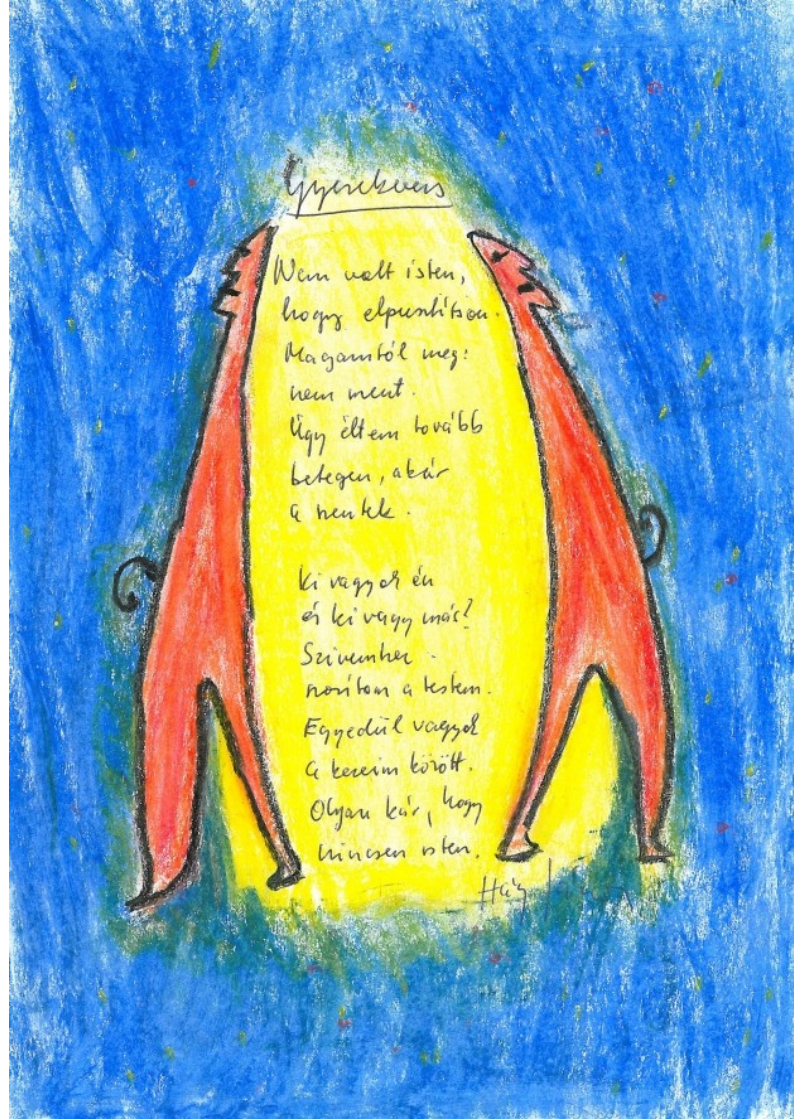 Gyerekvers
Nem volt isten,
hogy elpusztítson.
Magamtól meg:
nem ment.
Úgy éltem tovább
betegen, akár
a szentek.
Ki vagyok én
és ki vagy más?
Szívemhez
szorítom a testem.
Egyedül vagyok
a kezeim között.
Olyan kár, hogy
nincsen isten.
Háy